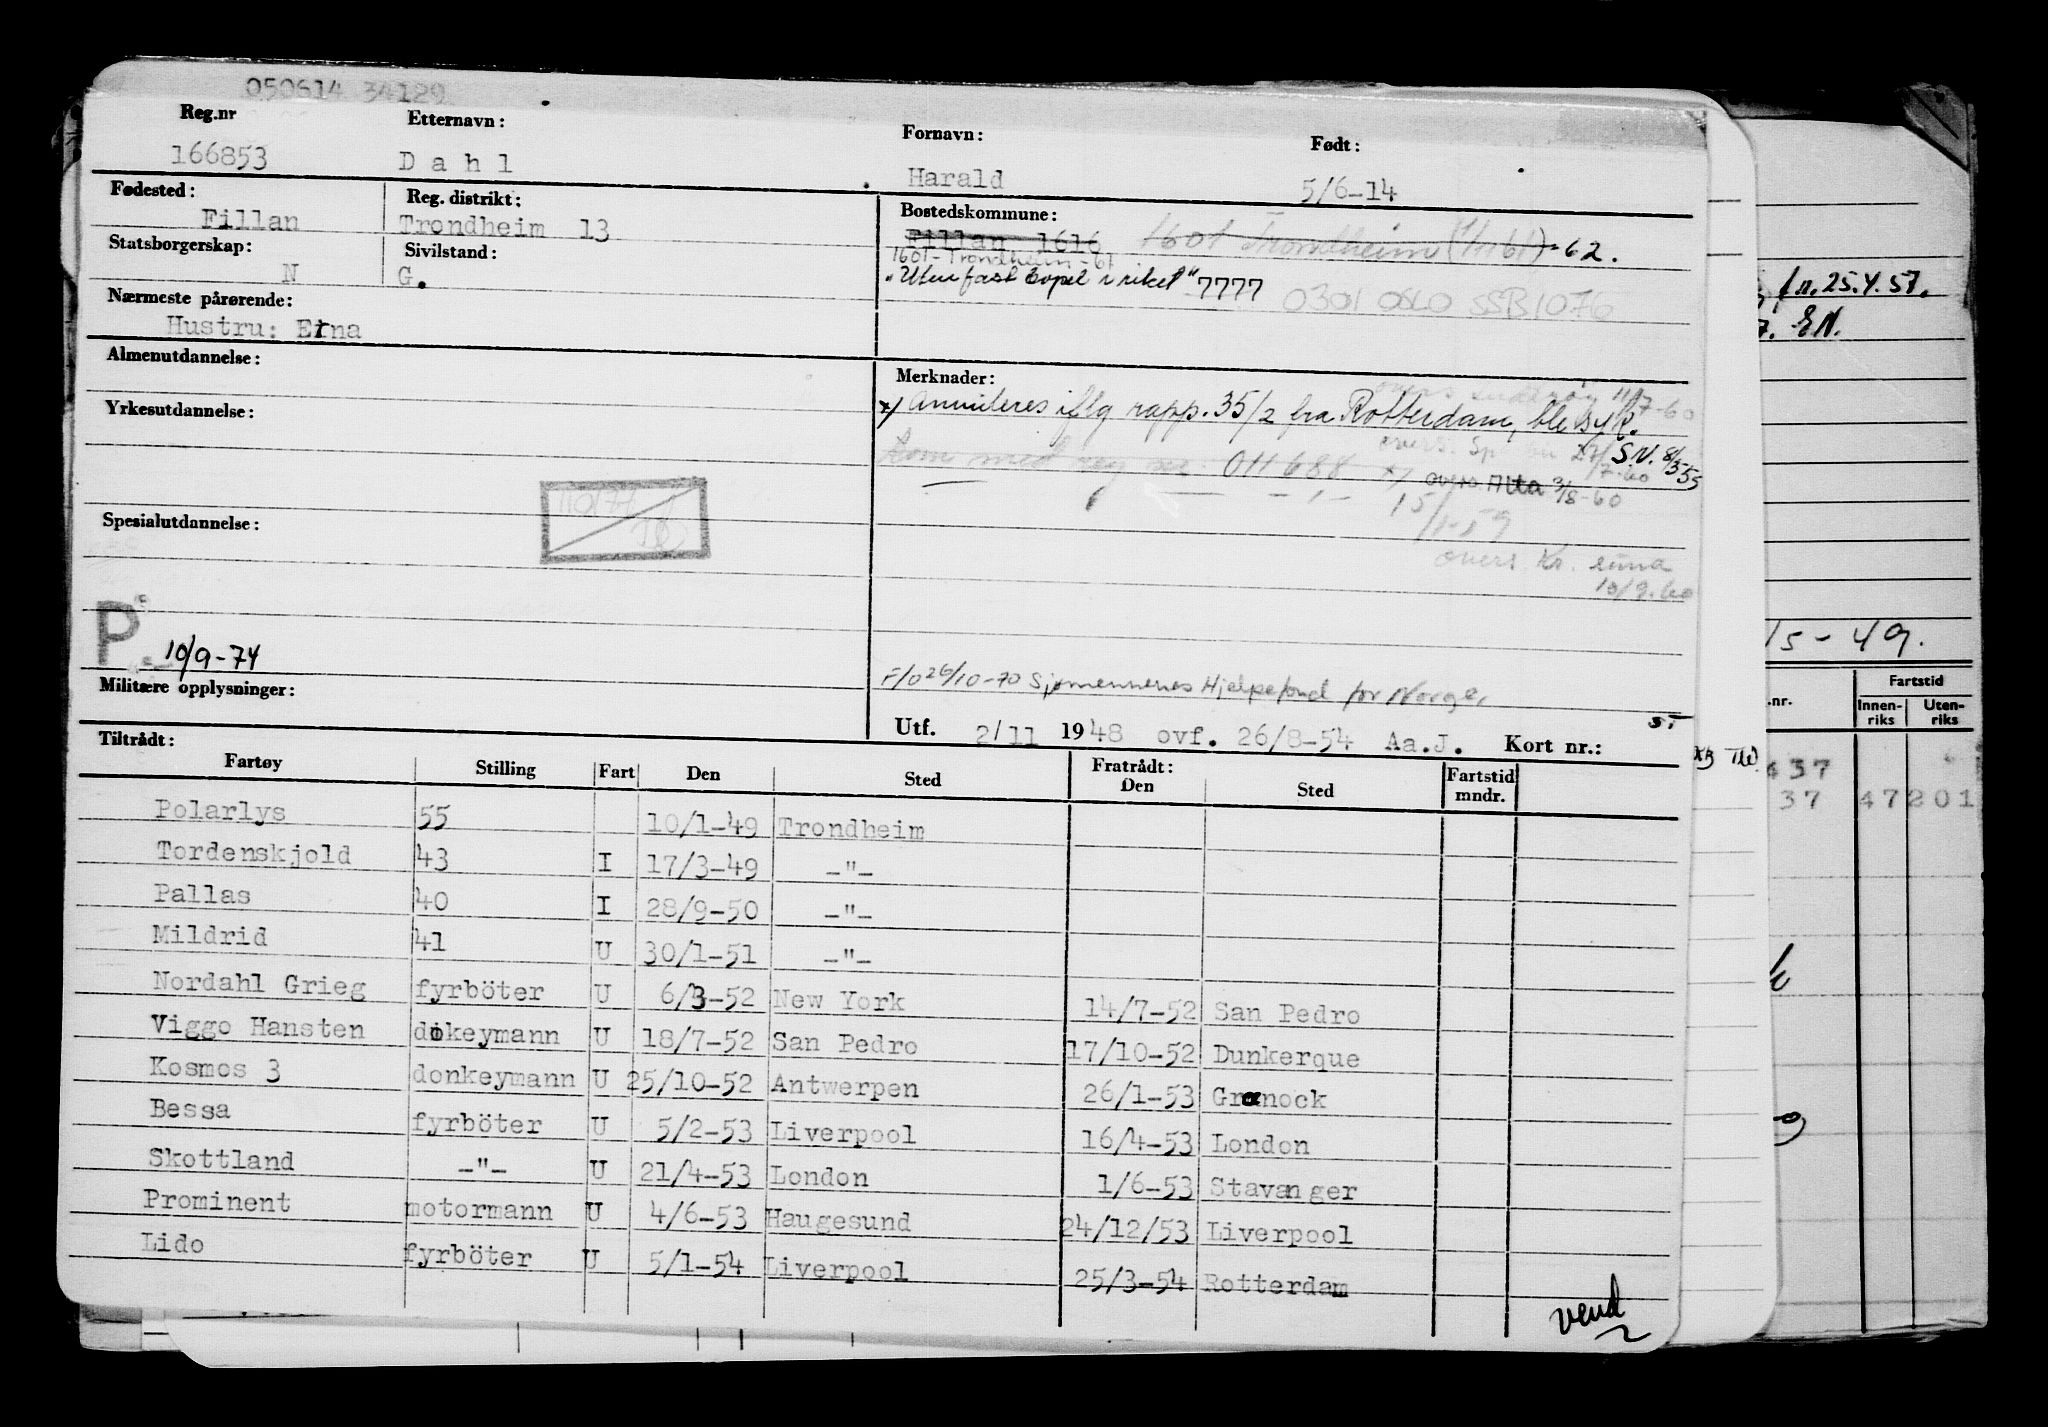 050614 34129
Reg.nr Etternavn: Fornavn: Født:
166853 Dahl Harald 5/6-14
Fødested: Reg. distrikt: Bostedskommune:
Fillan Trondheim 13 Fillan 1616 1601 Trondheim (1/1 61) -62.
Statsborgerskap: Sivilstand: 1601-Trondheim-61
N G. "Uten fast bopel i riket" 7777 0301 OSLO SSB 1076
Nærmeste pårørende:
Hustru: Erna
Almenutdannelse: Merknader: 11/7-60
x/ Annuleres iflg rapp. 35/2 fra Rotterdam, ble syk.
Yrkesutdannelse: S.N. 8/3 55
Kom med reg nr 011688 x/ overs. Alta 3/8-60
15/1-59
Spesialutdannelse:
overs. Kr. sund
19/9.60
P
10/9-74
F/O 26/10-70 Sjømennenes Hjelpefond for Norge.
Militære opplysninger:
Utf. 2/11 1948 ovf. 26/8-54 Aa.J. Kort nr.:
Tiltrådt: Fratrådt:
Fartøy Stilling Fart Den Sted Den Sted Fartstid mndr.
Polarlys 55 10/1-49 Trondheim
Tordenskjold 43 I 17/3-49 -"-
Pallas 40 I 28/9-50 -"-
Mildrid 41 U 30/1-51 -"-
Nordahl Grieg fyrböter U 6/3-52 New York 14/7-52 San Pedro
Viggo Hansten dokeymann U 18/7-52 San Pedro 17/10-52 Dunkerque
Kosmos 3 donkeymann U 25/10-52 Antwerpen 26/1-53 Granock
Bessa fyrböter U 5/2-53 Liverpool 16/4-53 London
Skottland -"- U 21/4-53 London 1/6-53 Stavanger
Prominent motormann U 4/6-53 Haugesund 24/12/53 Liverpool
Lido fyrböter U 5/1-54 Liverpool 25/3-54 Rotterdam
vend
fr. 25.4.57.
7. EN.
15-49.
.nr. Fartstid
Innen-riks Uten-riks
437
37 47 201